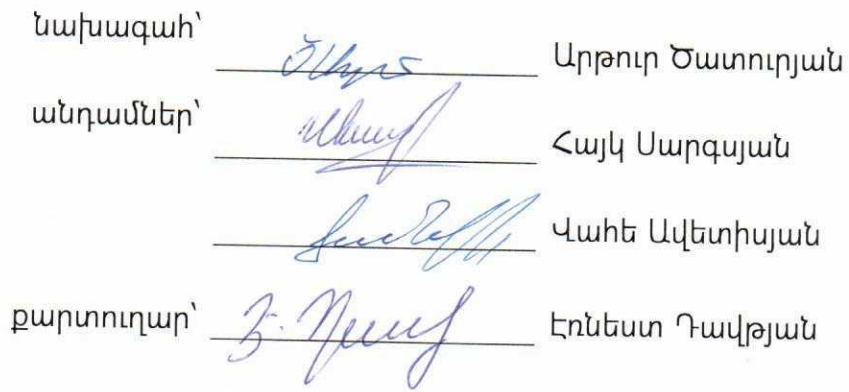 նախագահ՝ Արթուր Ծատուրյան
անդամներ՝ Հայկ Սարգսյան
Վահե Ավետիսյան
քարտուղար՝ Էռնեստ Դավթյան